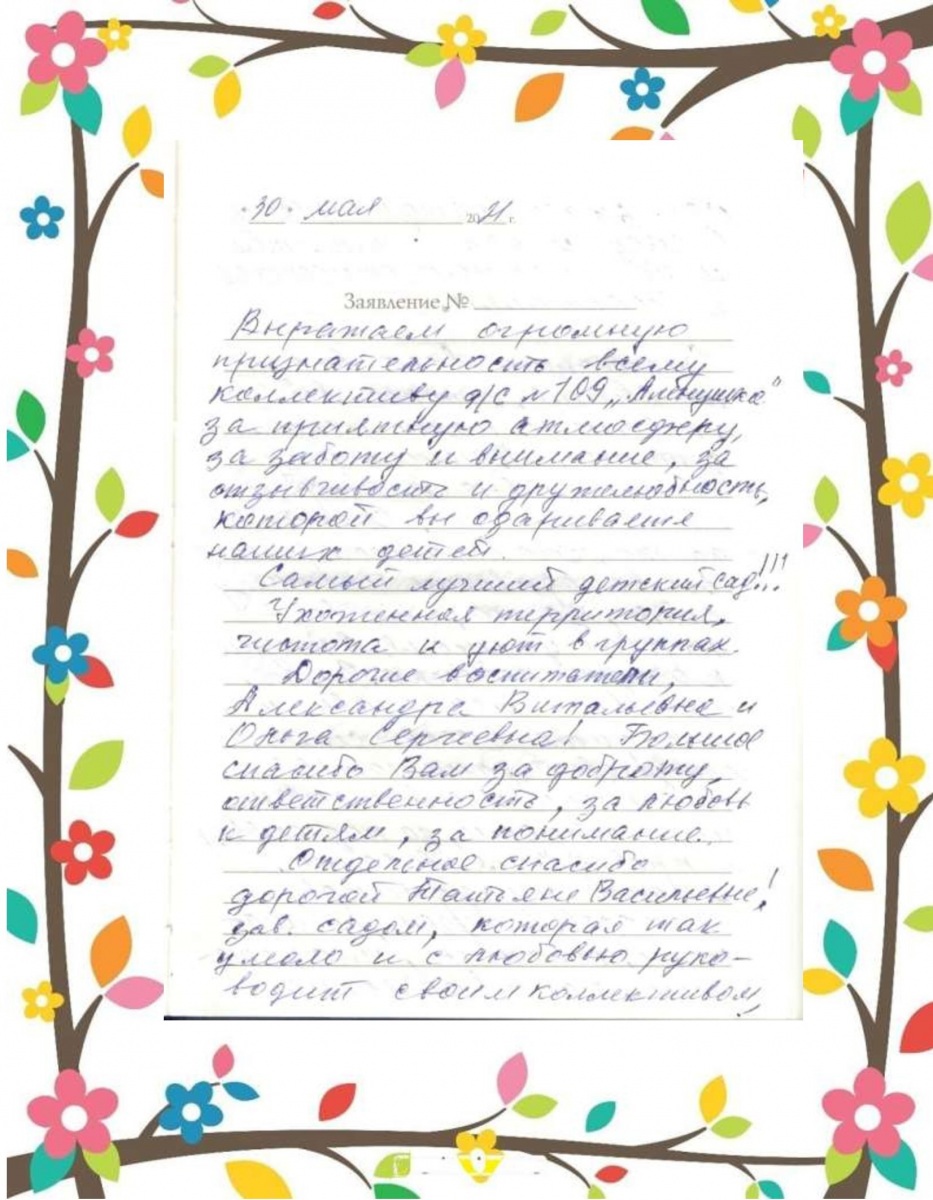 "30" мая 2021 г.
Заявление №
Выражаем огромную
признательность всему
коллективу д/с №109 „Аленушка"
за приятную атмосферу,
за заботу и внимание, за
отзывчивость и дружелюбность,
которой вы одариваете
наших детей.
Самый лучший детский сад!!!
Ухоженная территория,
чистота и уют в группах.
Дорогие воспитатели,
Александра Витальевна и
Ольга Сергеевна! Большое
спасибо Вам за доброту,
ответственность, за любовь
к детям, за понимание.
Отдельное спасибо
дорогой Татьяне Васильевне,
зав. садом, которая так
умело и с любовью руко-
водит своим коллективом!